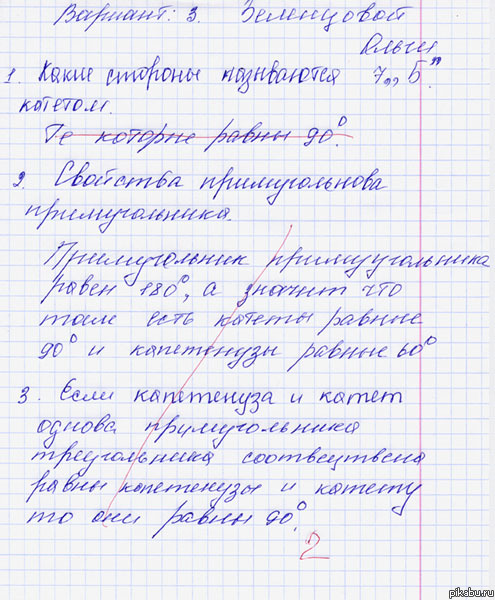 Вариант: 3. Зеленцовой
Ольги
1. Какие стороны называются 7„Б"
катетом.
Те которие равны 90°.
2. Свойства примугольнова
примугольника.
Примугольник примуугольника
равен 180°, а значит что
там есть катеты равные
90° и капетенузы равные 60°
3. Если капетенуза и катет
однова примугольника
треугольника соотвецтвена
равны капетенузы и катету
то они равны 90°.
2
pikabu.ru